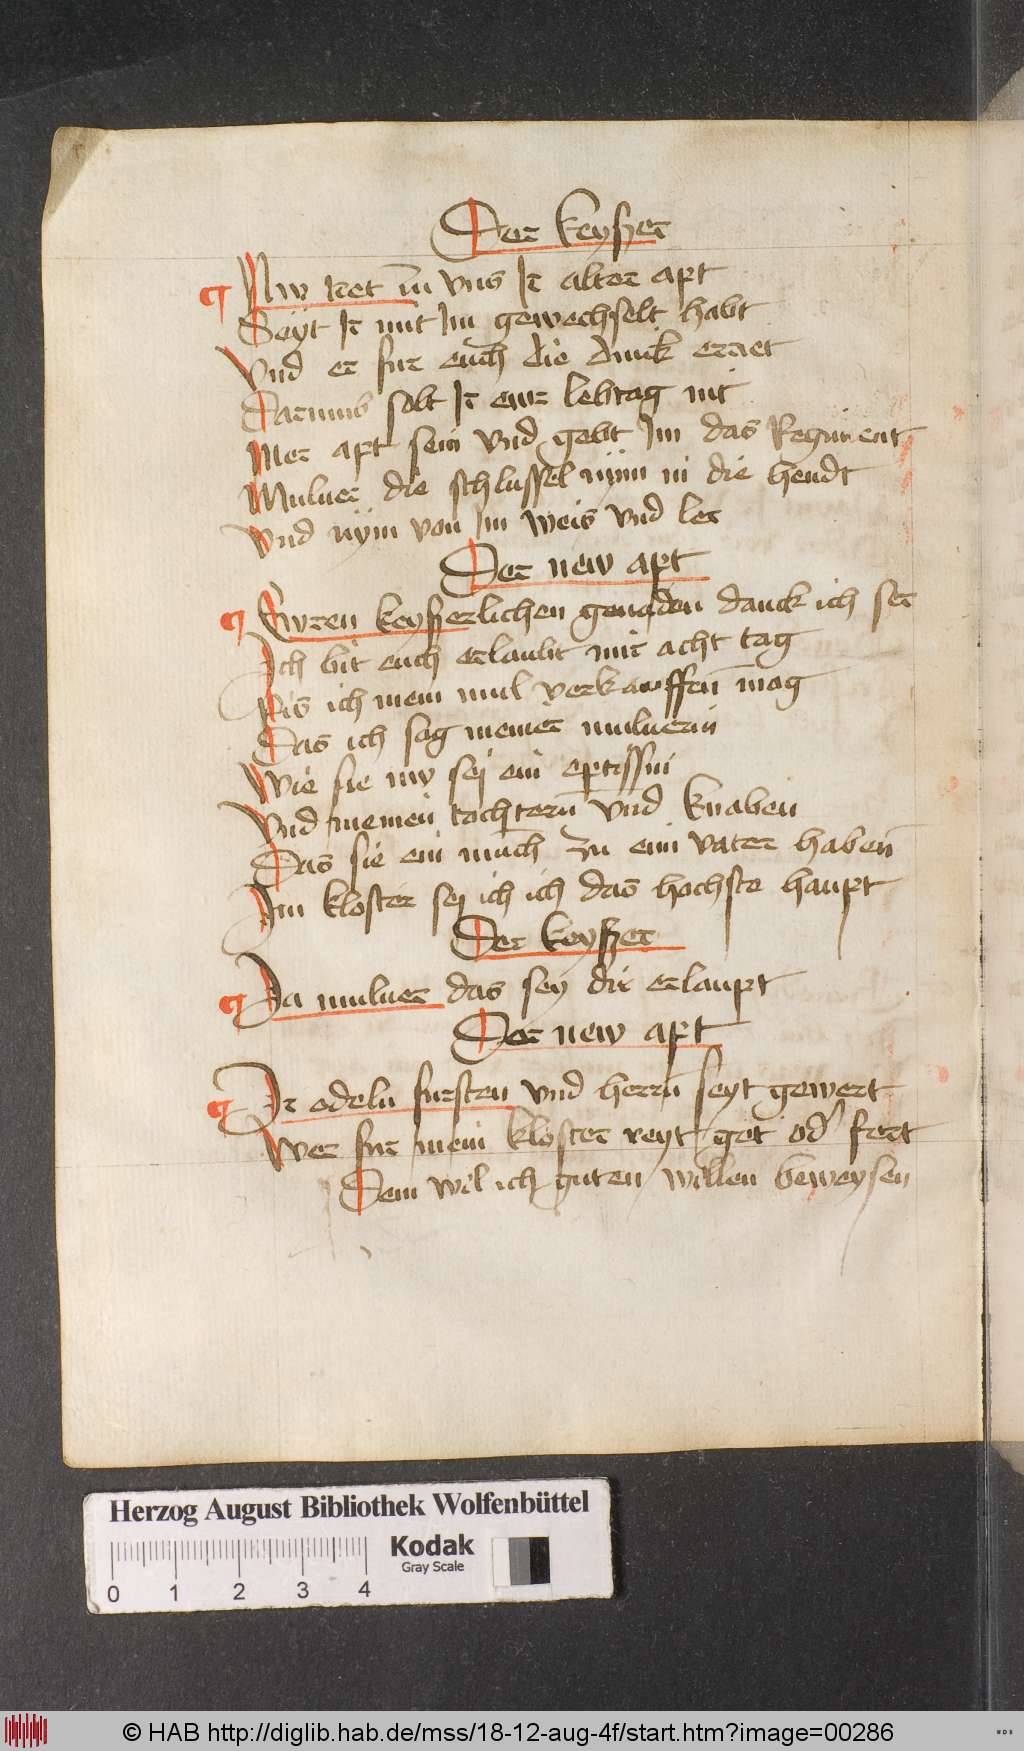 Der keyszer
Nw ret in vns Ir alter apt
Seyt Ir mit Im gewechselt habt
Vnd er fur euch die dinck erret
Darumb solt Ir ewr lebtag nit
Mer apt sein vnd gebt Im das Regiment
Mulner die schlussel nym in die hendt
Vnd nym von Im weis vnd ler
Der new apt
Ewren keyszerlichen genaden danck ich ser
Ich bit euch erlaubt mir acht tag
Pis ich mein mul verkauffen mag
Das ich sag meiner mulnerin
Wie sie nw sej ein eptissin
Vnd meinen tochtern vnd knaben
Das sie ein munch zu eim vater haben
Im kloster sej ich ich das hochste haupt
Der keyszer
Ja mulner das sey dir erlaupt
Der new apt
Ir edeln fursten vnd herrn seyt gewert
Wer fur mein kloster reyt get od' fert
Dem wil ich guten willen beweysen
Herzog August Bibliothek Wolfenbüttel
Kodak
Gray Scale
0 1 2 3 4
© HAB http://diglib.hab.de/mss/18-12-aug-4f/start.htm?image=00286
WDB